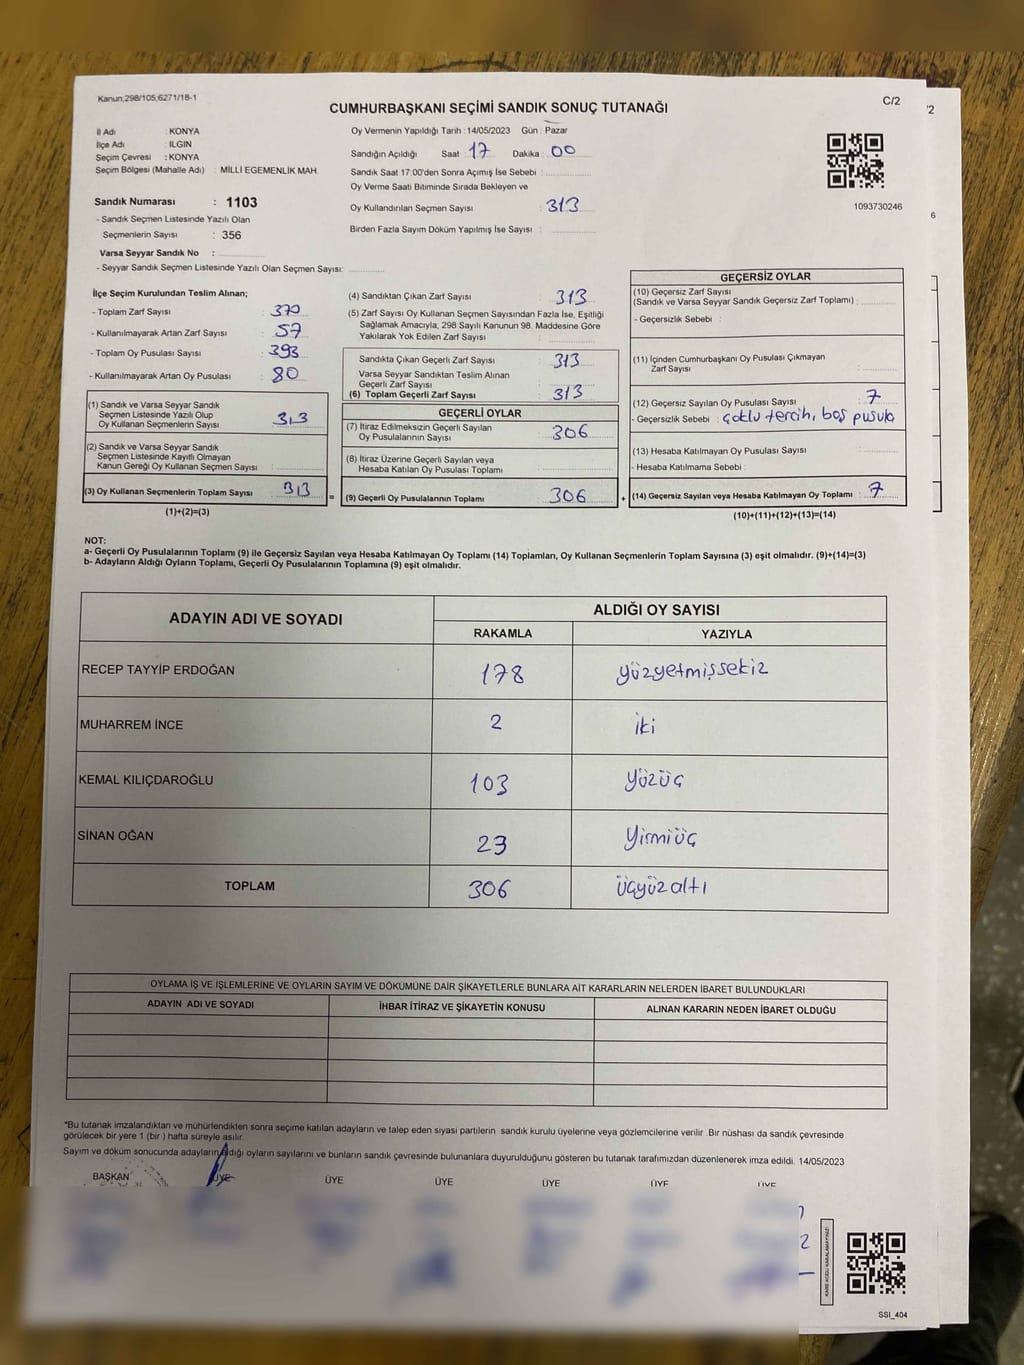 Kanun;298/105;6271/18-1
CUMHURBAŞKANI SEÇİMİ SANDIK SONUÇ TUTANAĞI
C/2
İl Adı : KONYA
İlçe Adı : ILGIN
Seçim Çevresi : KONYA
Seçim Bölgesi (Mahalle Adı) : MİLLİ EGEMENLİK MAH.
Sandık Numarası : 1103
- Sandık Seçmen Listesinde Yazılı Olan
Seçmenlerin Sayısı : 356
Varsa Seyyar Sandık No :
- Seyyar Sandık Seçmen Listesinde Yazılı Olan Seçmen Sayısı:
Oy Vermenin Yapıldığı Tarih : 14/05/2023 Gün : Pazar
Sandığın Açıldığı Saat 17 Dakika : 00
Sandık Saat 17:00'den Sonra Açımış İse Sebebi :
Oy Verme Saati Bitiminde Sırada Bekleyen ve
Oy Kullandırılan Seçmen Sayısı : 313
Birden Fazla Sayım Döküm Yapılmış İse Sayısı :
1093730246
'2
6
İlçe Seçim Kurulundan Teslim Alınan;
- Toplam Zarf Sayısı : 370
- Kullanılmayarak Artan Zarf Sayısı : 57
- Toplam Oy Pusulası Sayısı : 393
- Kullanılmayarak Artan Oy Pusulası : 80
(1) Sandık ve Varsa Seyyar Sandık
Seçmen Listesinde Yazılı Olup
Oy Kullanan Seçmenlerin Sayısı : 313
(2) Sandık ve Varsa Seyyar Sandık
Seçmen Listesinde Kayıtlı Olmayan
Kanun Gereği Oy Kullanan Seçmen Sayısı :
(3) Oy Kullanan Seçmenlerin Toplam Sayısı : 313
(1)+(2)=(3)
=
(4) Sandıktan Çıkan Zarf Sayısı : 313
(5) Zarf Sayısı Oy Kullanan Seçmen Sayısından Fazla İse, Eşitliği
Sağlamak Amacıyla, 298 Sayılı Kanunun 98. Maddesine Göre
Yakılarak Yok Edilen Zarf Sayısı :
Sandıkta Çıkan Geçerli Zarf Sayısı : 313
Varsa Seyyar Sandıktan Teslim Alınan
Geçerli Zarf Sayısı :
(6) Toplam Geçerli Zarf Sayısı : 313
GEÇERLİ OYLAR
(7) İtiraz Edilmeksizin Geçerli Sayılan
Oy Pusulalarının Sayısı : 306
(8) İtiraz Üzerine Geçerli Sayılan veya
Hesaba Katılan Oy Pusulası Toplamı :
(9) Geçerli Oy Pusulalarının Toplamı : 306
+
GEÇERSİZ OYLAR
(10) Geçersiz Zarf Sayısı
(Sandık ve Varsa Seyyar Sandık Geçersiz Zarf Toplamı) :
- Geçersizlik Sebebi :
(11) İçinden Cumhurbaşkanı Oy Pusulası Çıkmayan
Zarf Sayısı :
(12) Geçersiz Sayılan Oy Pusulası Sayısı : 7
- Geçersizlik Sebebi : çoklu tercih, boş pusula
(13) Hesaba Katılmayan Oy Pusulası Sayısı :
- Hesaba Katılmama Sebebi :
(14) Geçersiz Sayılan veya Hesaba Katılmayan Oy Toplamı : 7
(10)+(11)+(12)+(13)=(14)
NOT:
a- Geçerli Oy Pusulalarının Toplamı (9) ile Geçersiz Sayılan veya Hesaba Katılmayan Oy Toplamı (14) Toplamları, Oy Kullanan Seçmenlerin Toplam Sayısına (3) eşit olmalıdır. (9)+(14)=(3)
b- Adayların Aldığı Oyların Toplamı, Geçerli Oy Pusulalarının Toplamına (9) eşit olmalıdır.
ADAYIN ADI VE SOYADI ALDIĞI OY SAYISI
RAKAMLA YAZIYLA
RECEP TAYYİP ERDOĞAN 178 yüzyetmişsekiz
MUHARREM İNCE 2 iki
KEMAL KILIÇDAROĞLU 103 yüzüç
SİNAN OĞAN 23 yirmiüç
TOPLAM 306 üçyüzaltı
OYLAMA İŞ VE İŞLEMLERİNE VE OYLARIN SAYIM VE DÖKÜMÜNE DAİR ŞİKAYETLERLE BUNLARA AİT KARARLARIN NELERDEN İBARET BULUNDUKLARI
ADAYIN ADI VE SOYADI İHBAR İTİRAZ VE ŞİKAYETİN KONUSU ALINAN KARARIN NEDEN İBARET OLDUĞU
*Bu tutanak imzalandıktan ve mühürlendikten sonra seçime katılan adayların ve talep eden siyasi partilerin sandık kurulu üyelerine veya gözlemcilerine verilir. Bir nüshası da sandık çevresinde
görülecek bir yere 1 (bir) hafta süreyle asılır.
Sayım ve döküm sonucunda adayların aldığı oyların sayılarını ve bunların sandık çevresinde bulunanlara duyurulduğunu gösteren bu tutanak tarafımızdan düzenlenerek imza edildi. 14/05/2023
BAŞKAN ÜYE ÜYE ÜYE ÜYE ÜYE ÜYE
2
KARE KODU KARALAMAYINIZ!
SSI_404